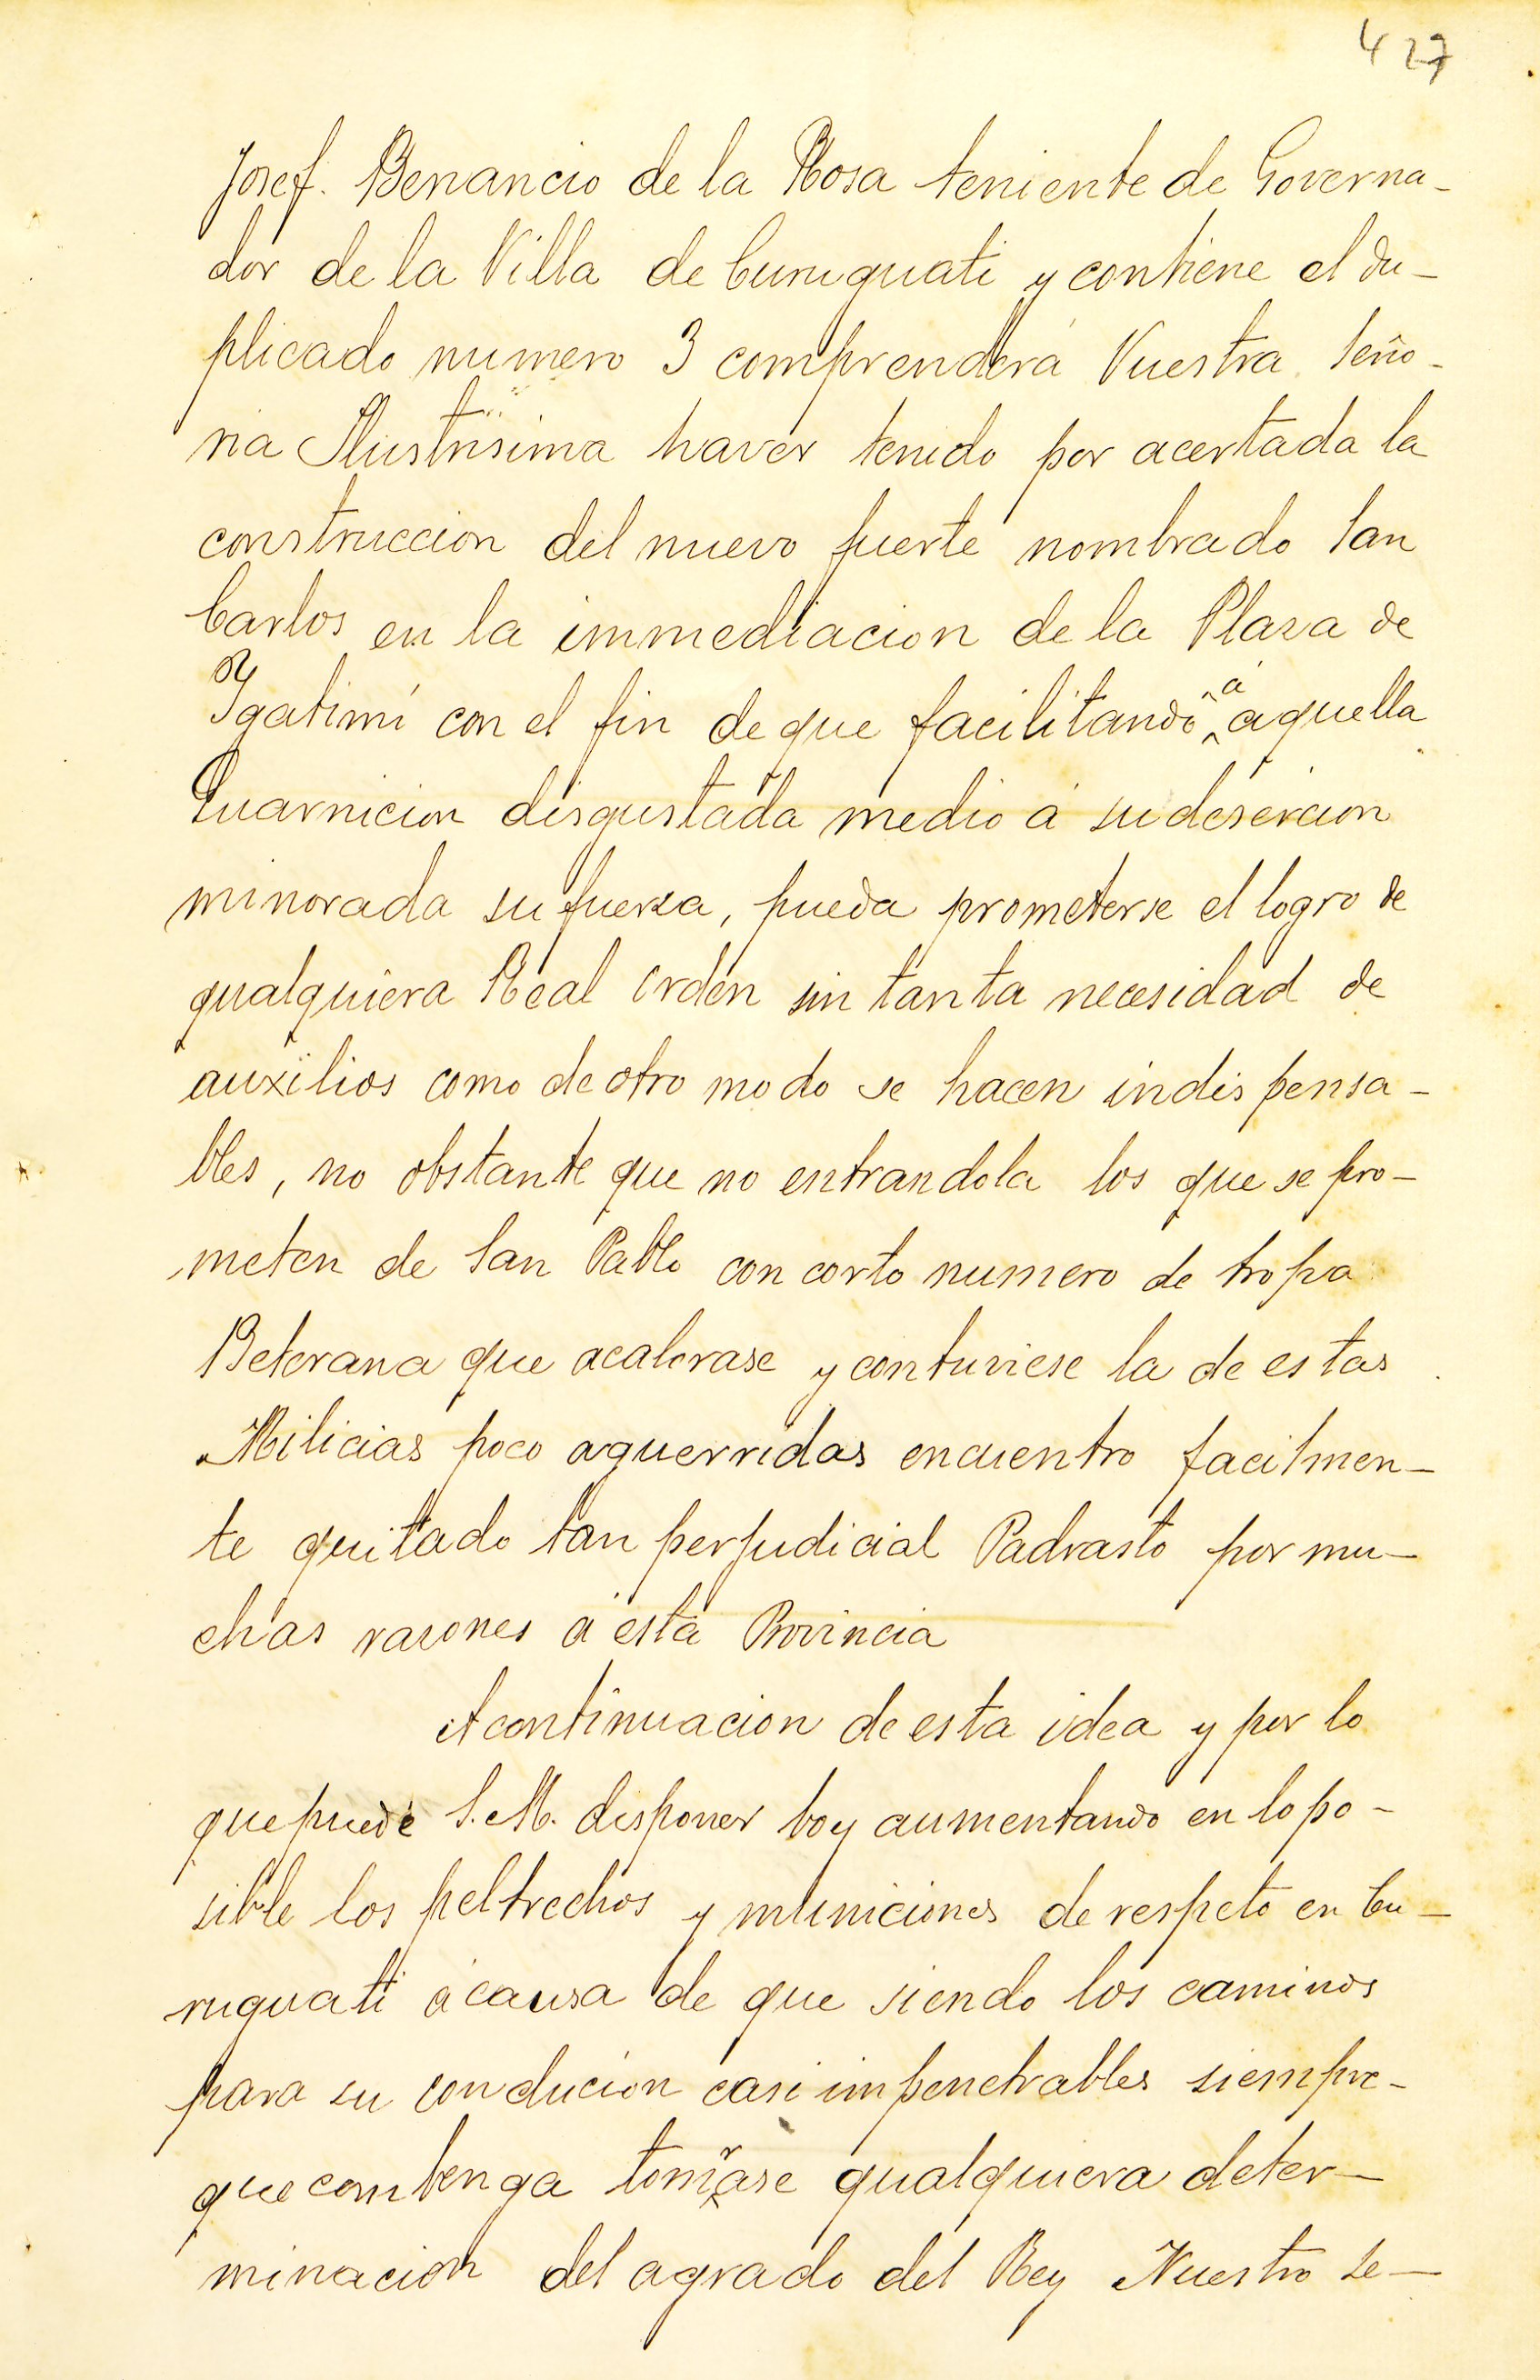 427
Josef. Benancio de la Rosa teniente de Governa-
dor de la Villa de Curuguati y contiene el du-
plicado numero 3 comprenderá Vuestra Seño-
ria Ilustrisima haver tenido por acertada la
construccion del nuevo fuerte nombrado San
Carlos en la immediacion de la Plaza de
Ygatimí con el fin de que facilitando á aquella
Guarnicion disgustada medio á su desercion
minorada su fuerza, pueda prometerse el logro de
qualquiera Real Orden sin tanta necesidad de
auxilios como de otro modo se hacen indispensa-
bles, no obstante que no entrandola los que se pro-
meten de San Pablo con corto numero de tropa
Beterana que acalorase y contuviese la de estas
Milicias poco aguerridas encuentro facilmen-
te quitado tan perjudicial Padrasto por mu-
chas razones á esta Provincia
A continuacion de esta idea y por lo
que puede S.M. disponer boy aumentando en lo po-
sible los peltrechos y municiones de respeto en Cu-
ruguati á causa de que siendo los caminos
para su conducion casi impenetrables siempre-
que combenga tomarse qualquiera deter-
minacion del agrado del Rey Nuestro Se-